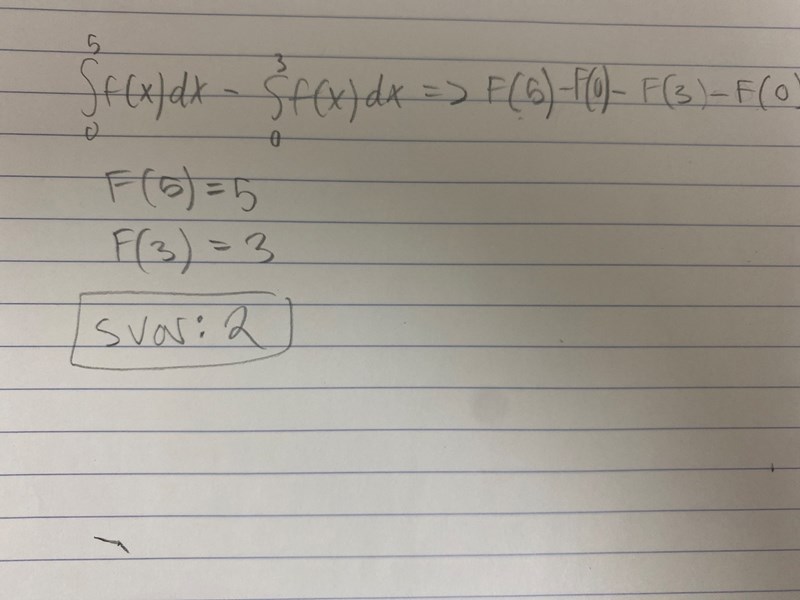 ∫₀⁵ f(x)dx - ∫₀³ f(x)dx => F(5)-F(0)- F(3)-F(0)
F(5)=5
F(3) = 3
svar: 2